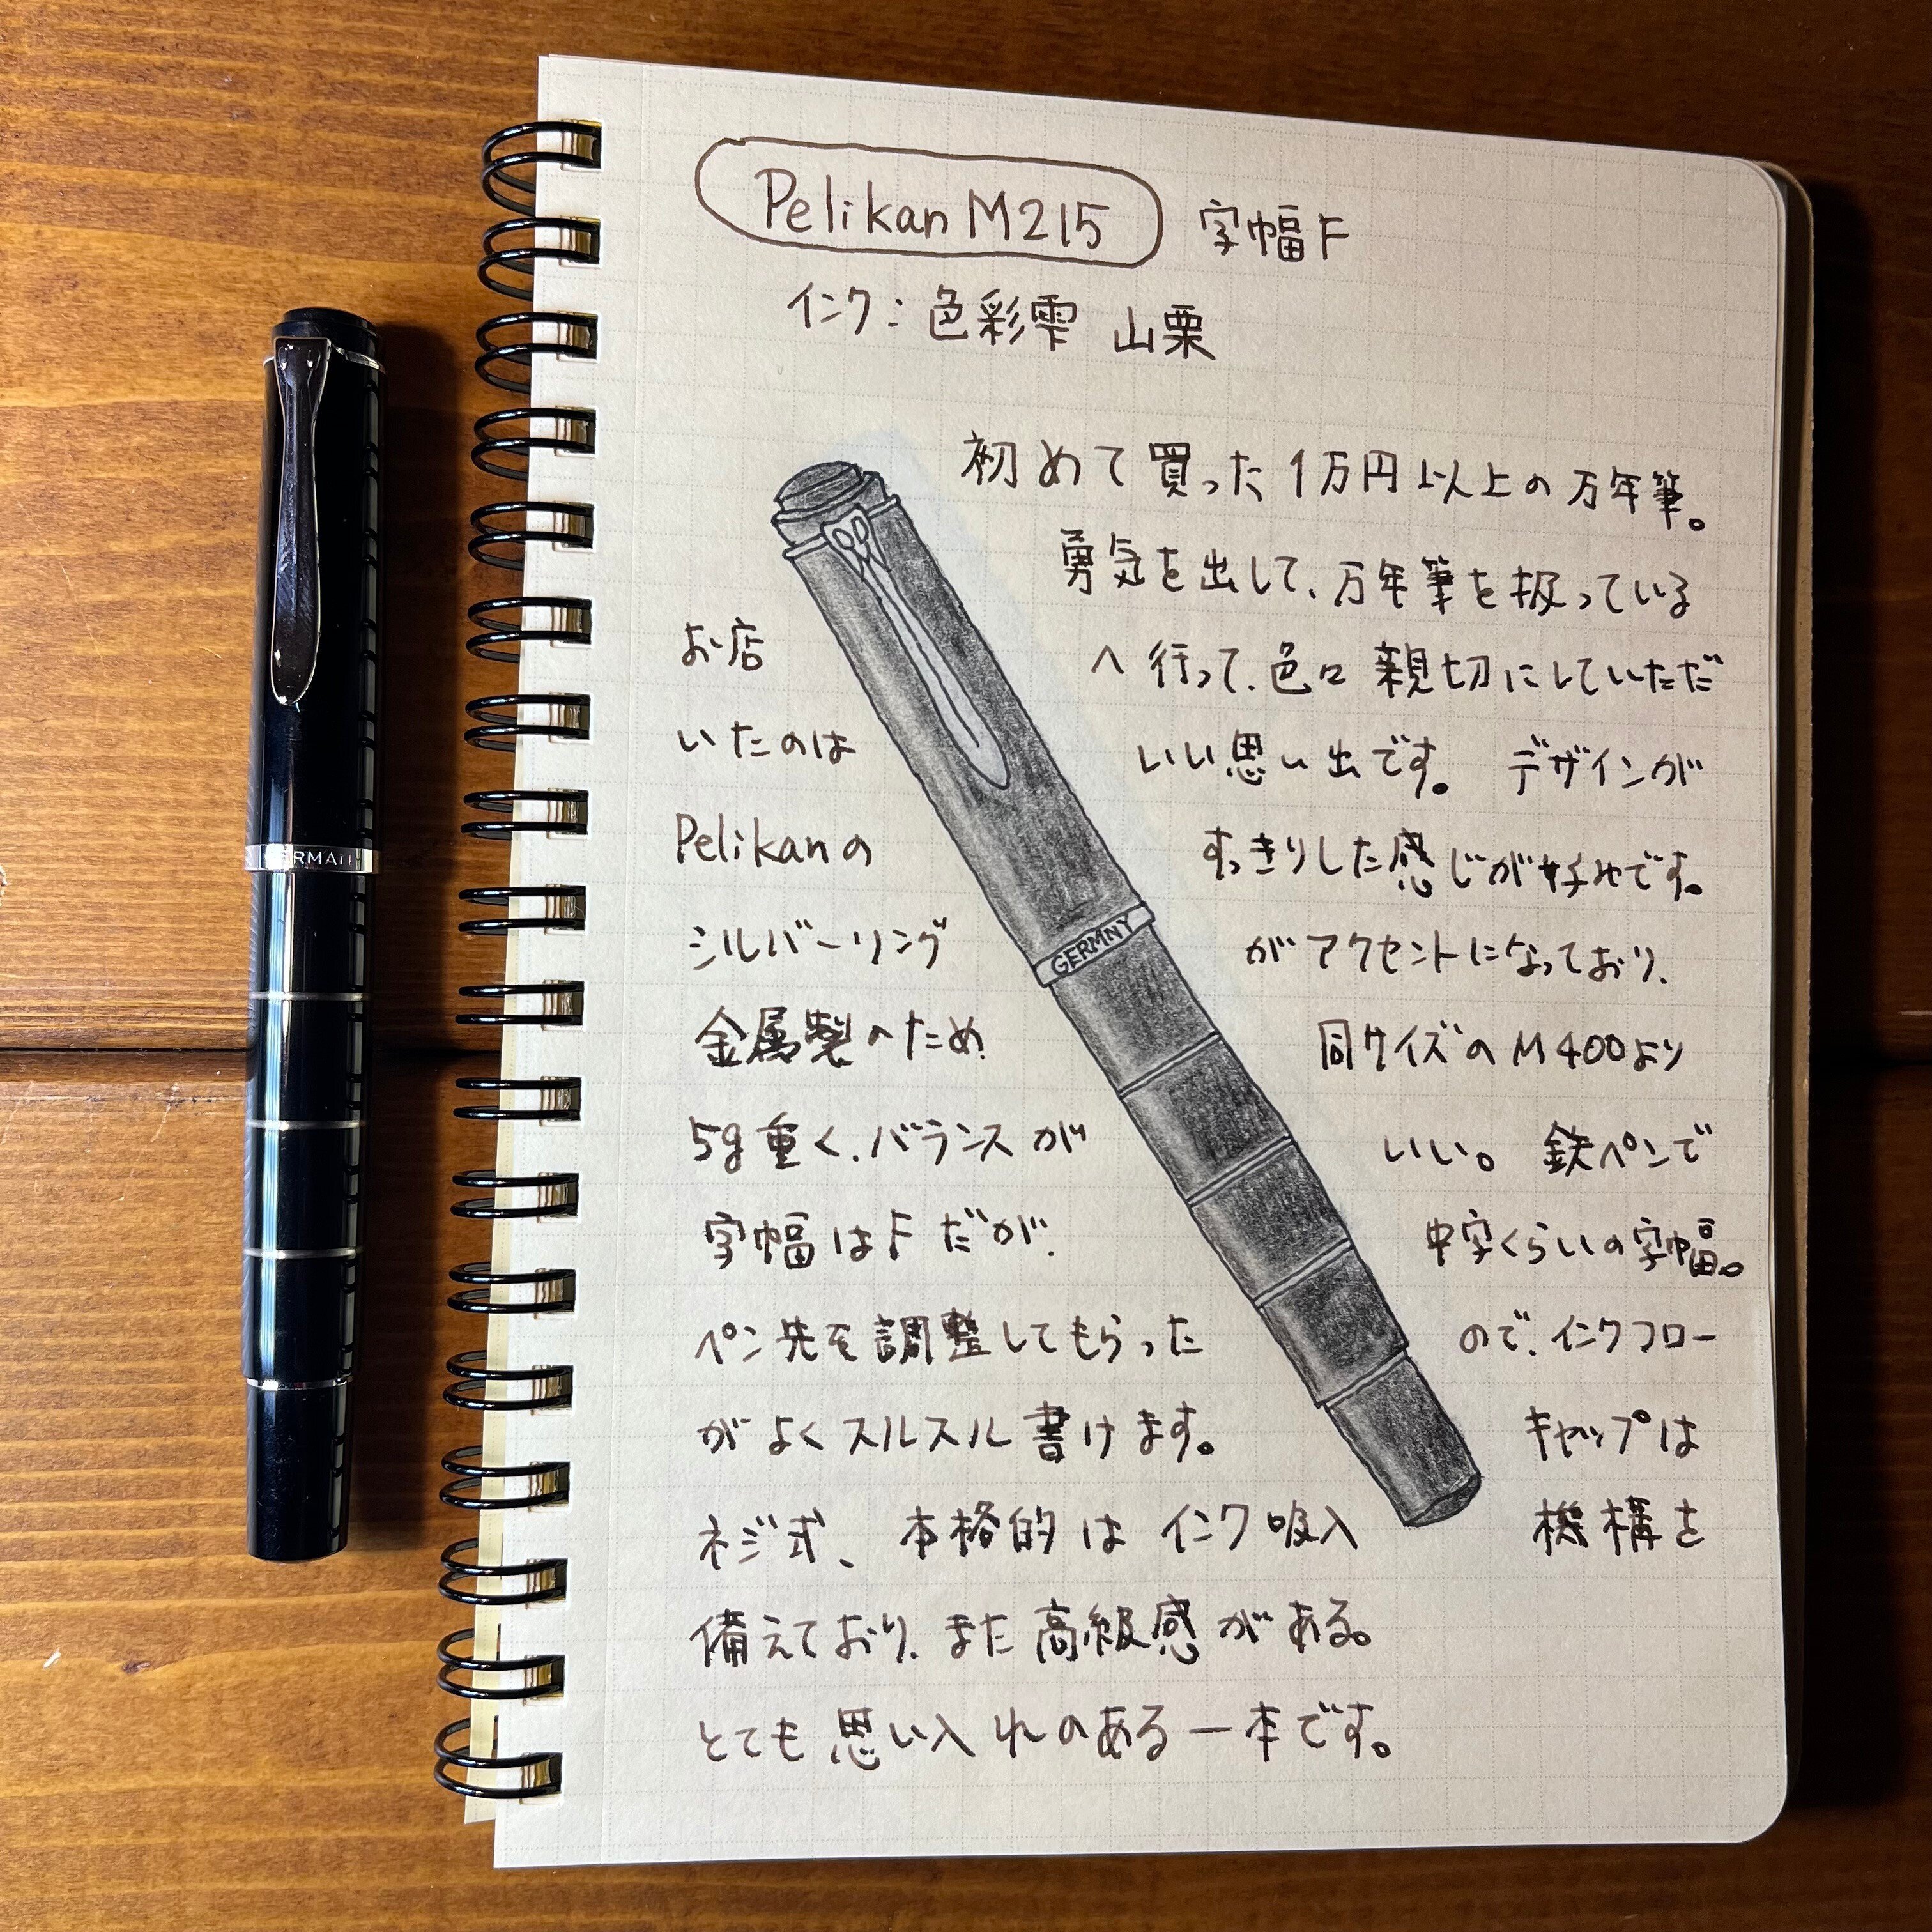 Pelikan M215 字幅F
インク：色彩雫 山栗
初めて買った1万円以上の万年筆。
勇気を出して、万年筆を扱っている
お店へ行って、色々親切にしていただ
いたのはいい思い出です。 デザインが
Pelikanのすっきりした感じが好みです。
シルバーリングがアクセントになっており、
金属製のため、同サイズのM400より
5g重く、バランスがいい。 鉄ペンで
字幅はFだが、中字くらいの字幅。
ペン先を調整してもらったので、インクフロー
がよくスルスル書けます。キャップは
ネジ式、本格的はインク吸入機構を
備えており、また高級感がある。
とても思い入れのある一本です。
GERMNY
GERMANY